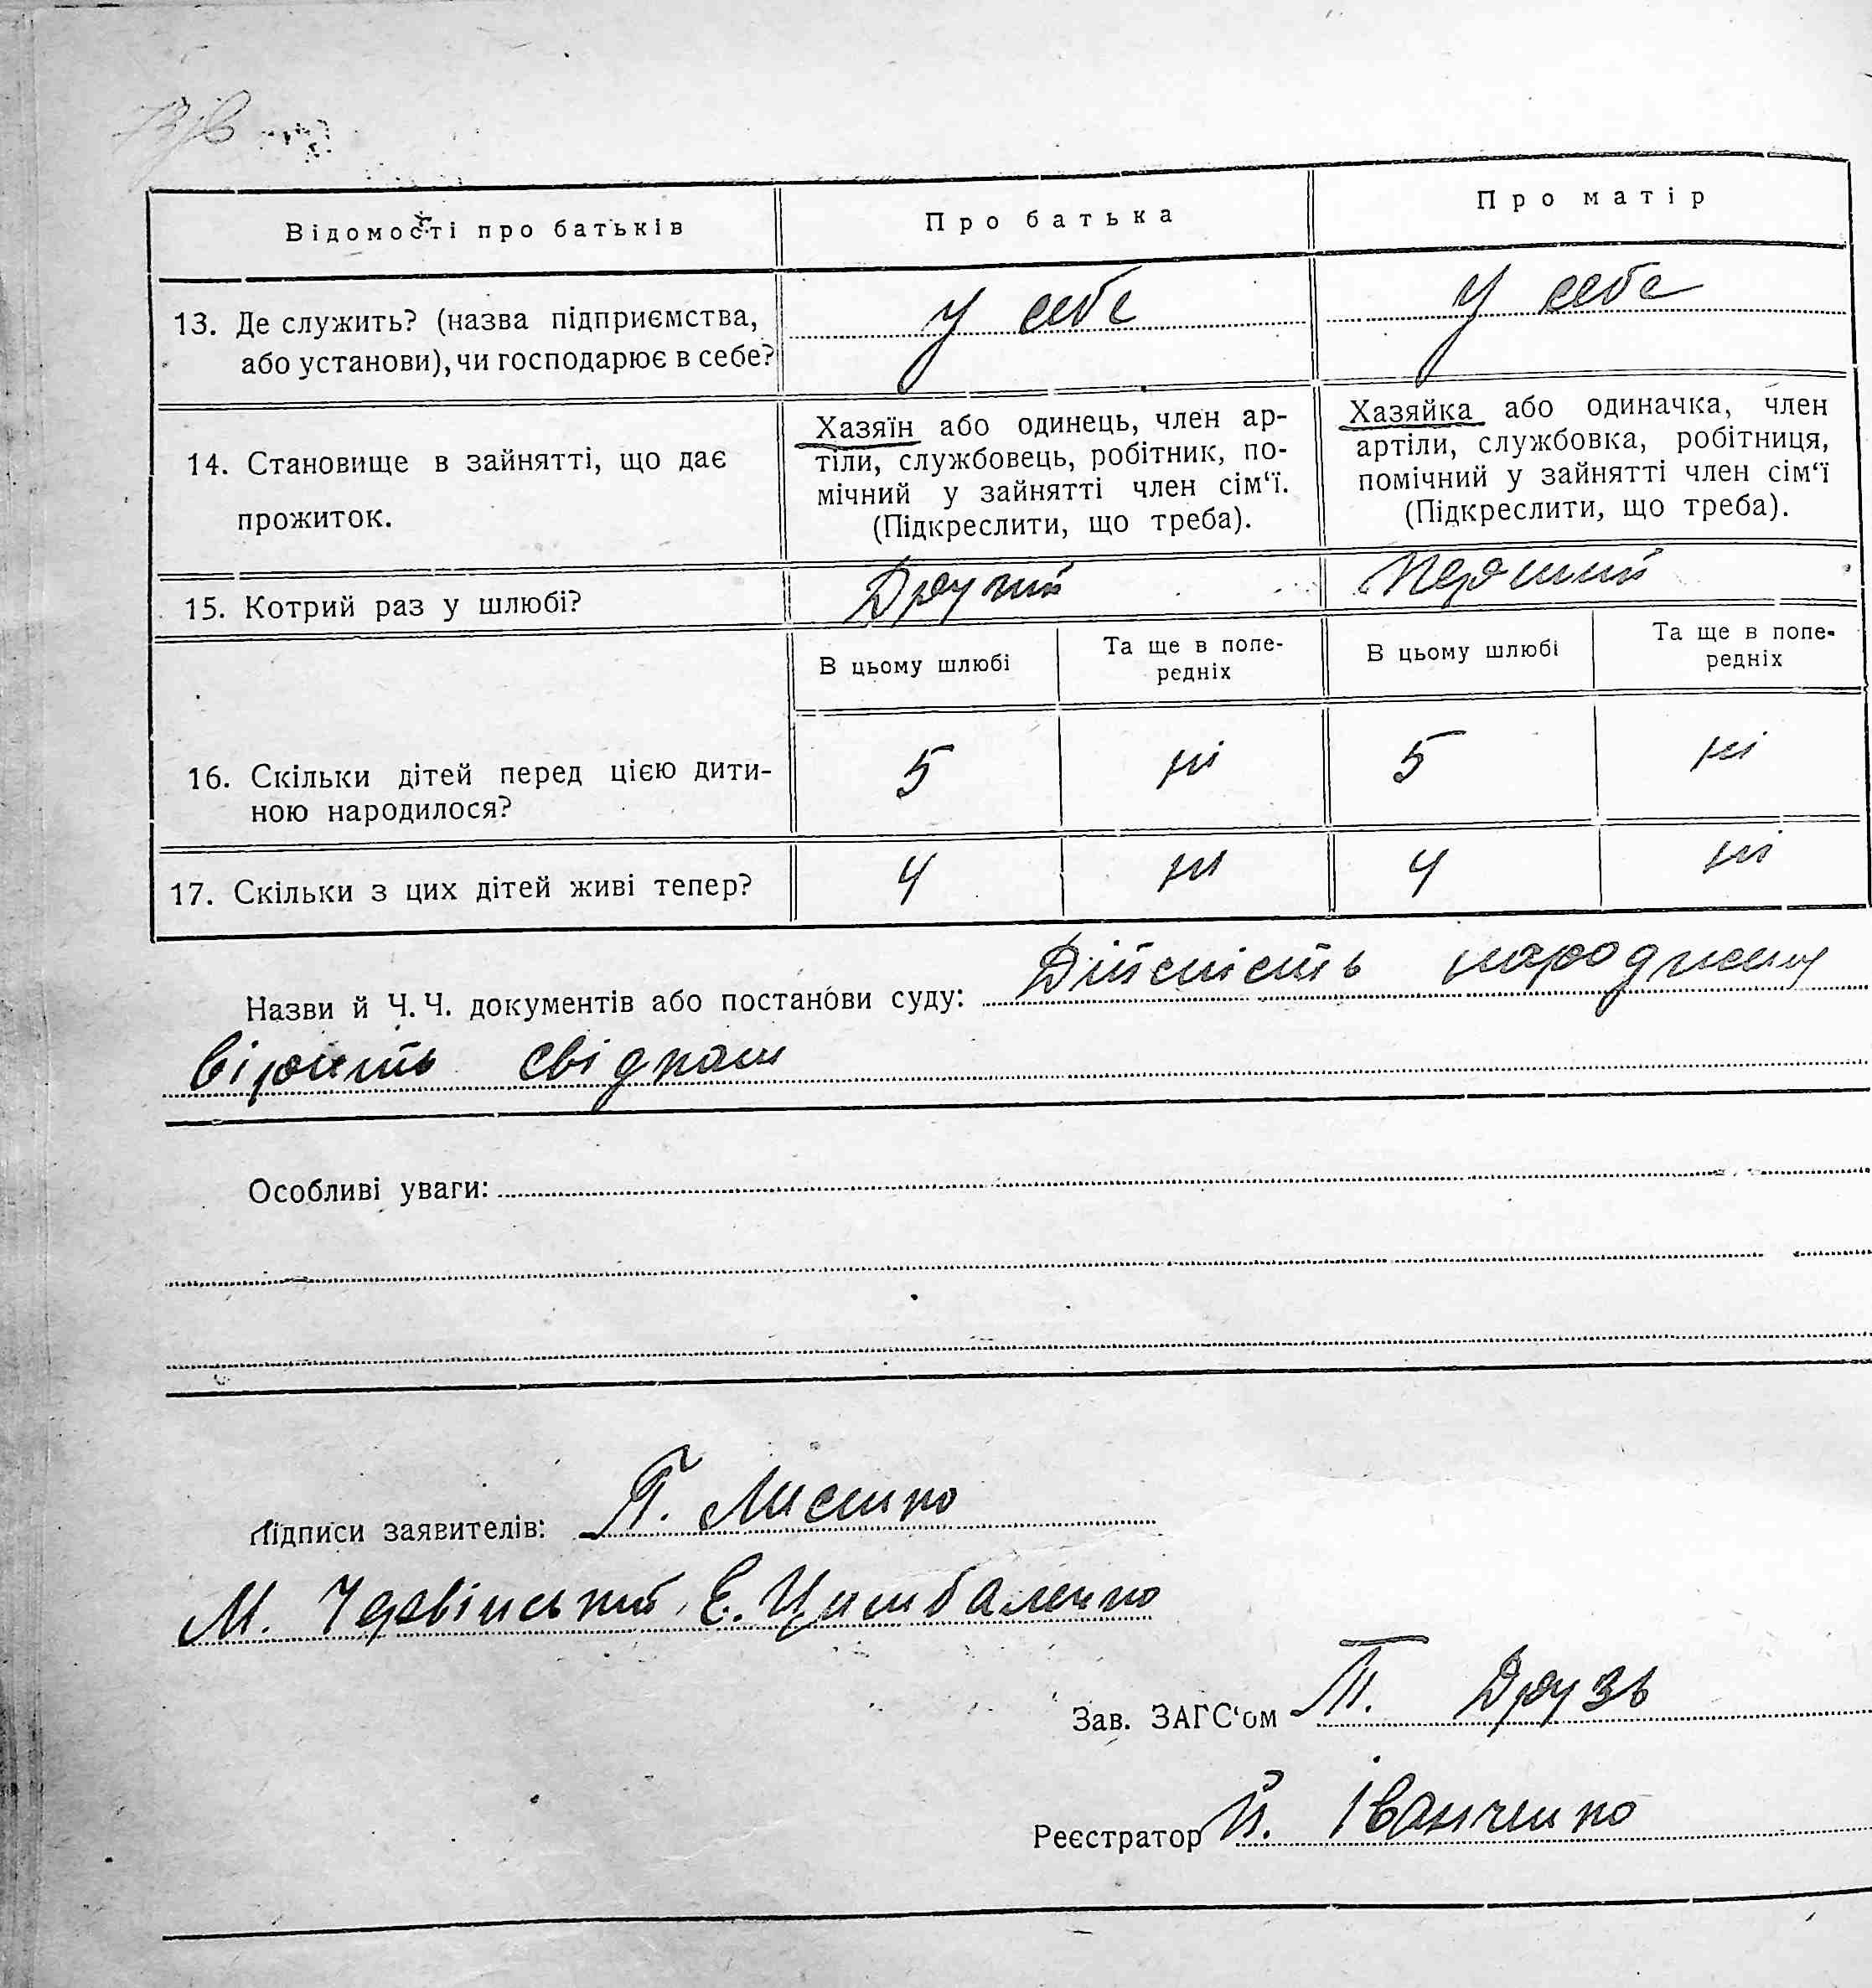 Відомості про батьків
Про батька
Про матір
13. Де служить? (назва підприємства,
або установи), чи господарює в себе?
у себе
у себе
14. Становище в зайнятті, що дає
прожиток.
Хазяїн або одинець, член ар-
тіли, службовець, робітник, по-
мічний у зайнятті член сім‘ї.
(Підкреслити, що треба).
Хазяйка або одиначка, член
артіли, службовка, робітниця,
помічний у зайнятті член сім‘ї
(Підкреслити, що треба).
15. Котрий раз у шлюбі?
Другий
Перший
В цьому шлюбі
Та ще в попе-
редніх
В цьому шлюбі
Та ще в попе-
редніх
16. Скільки дітей перед цією дити-
ною народилося?
5
ні
5
ні
17. Скільки з цих дітей живі тепер?
4
ні
4
ні
Назви й Ч.Ч. документів або постанови суду: Дійсність народження
вірить свідками
Особливі уваги:
Підписи заявителів: П. Лисенко
М. Червінський, Е. Цимбаленко
Зав. ЗАГС‘ом П. Друзь
Реєстратор Й. Іванченко